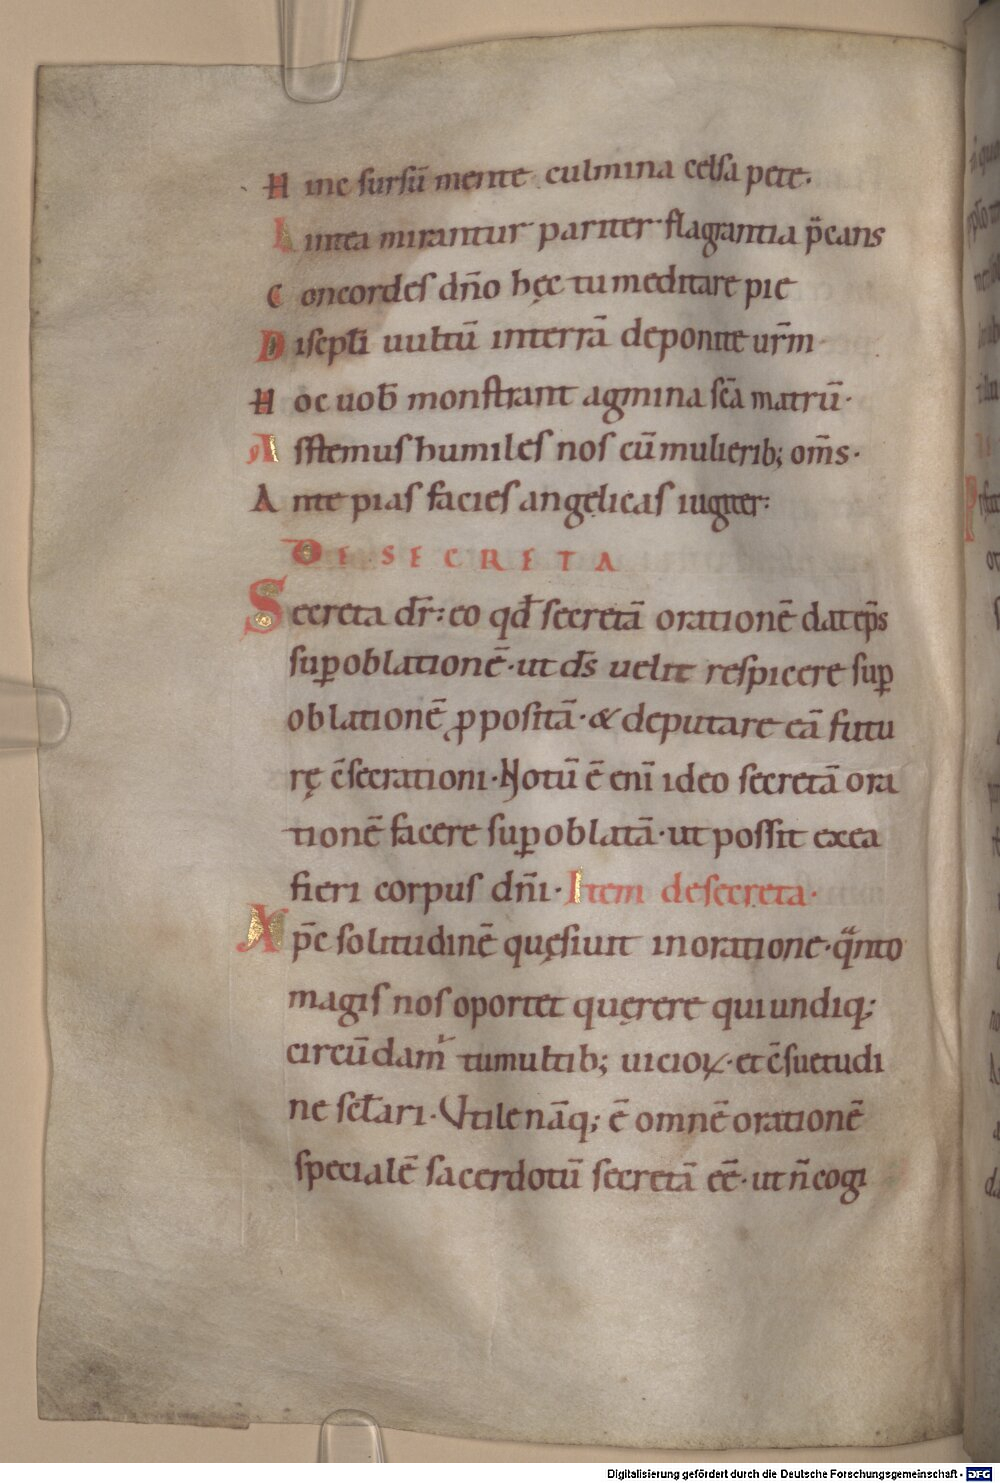 Hinc sursū mente culmina celsa pete.
Lintea mirantur pariter flagrantia p̄cans
Concordes dn̄o hęc tu meditare pie
Discipl̄i uultū interrā deponite ur̄m
Hoc uob̄ monstrant agmina sc̄a matrū·
Asstemus humiles nos cū mulierib; om̄s·
Ante pias facies angelicas iugiter:
DE SECRETA
Secreta dr̄: eo qd̄ secretā orationē dat ep̄s
suꝑ oblationē· ut ds̄ uelit respicere suꝑ
oblationē ꝓpositā· & deputare eā futu
rę c̄secrationi· Notū ē eni̅ ideo secretā ora
tionē facere suꝑ oblatā· ut possit ex ea
fieri corpus dn̄i· Item de secreta·
Xp̄c solitudinē quęsiuit in oratione· q̄nto
magis nos oportet quęrere qui undiq;
circūdamʳ tumultib; uicioꝝ· et c̄suetudi
ne sc̄lari· Vtile nāq; ē omnē orationē
specialē sacerdotū secretā eē· ut n̄ cogi
Digitalisierung gefördert durch die Deutsche Forschungsgemeinschaft - DFG